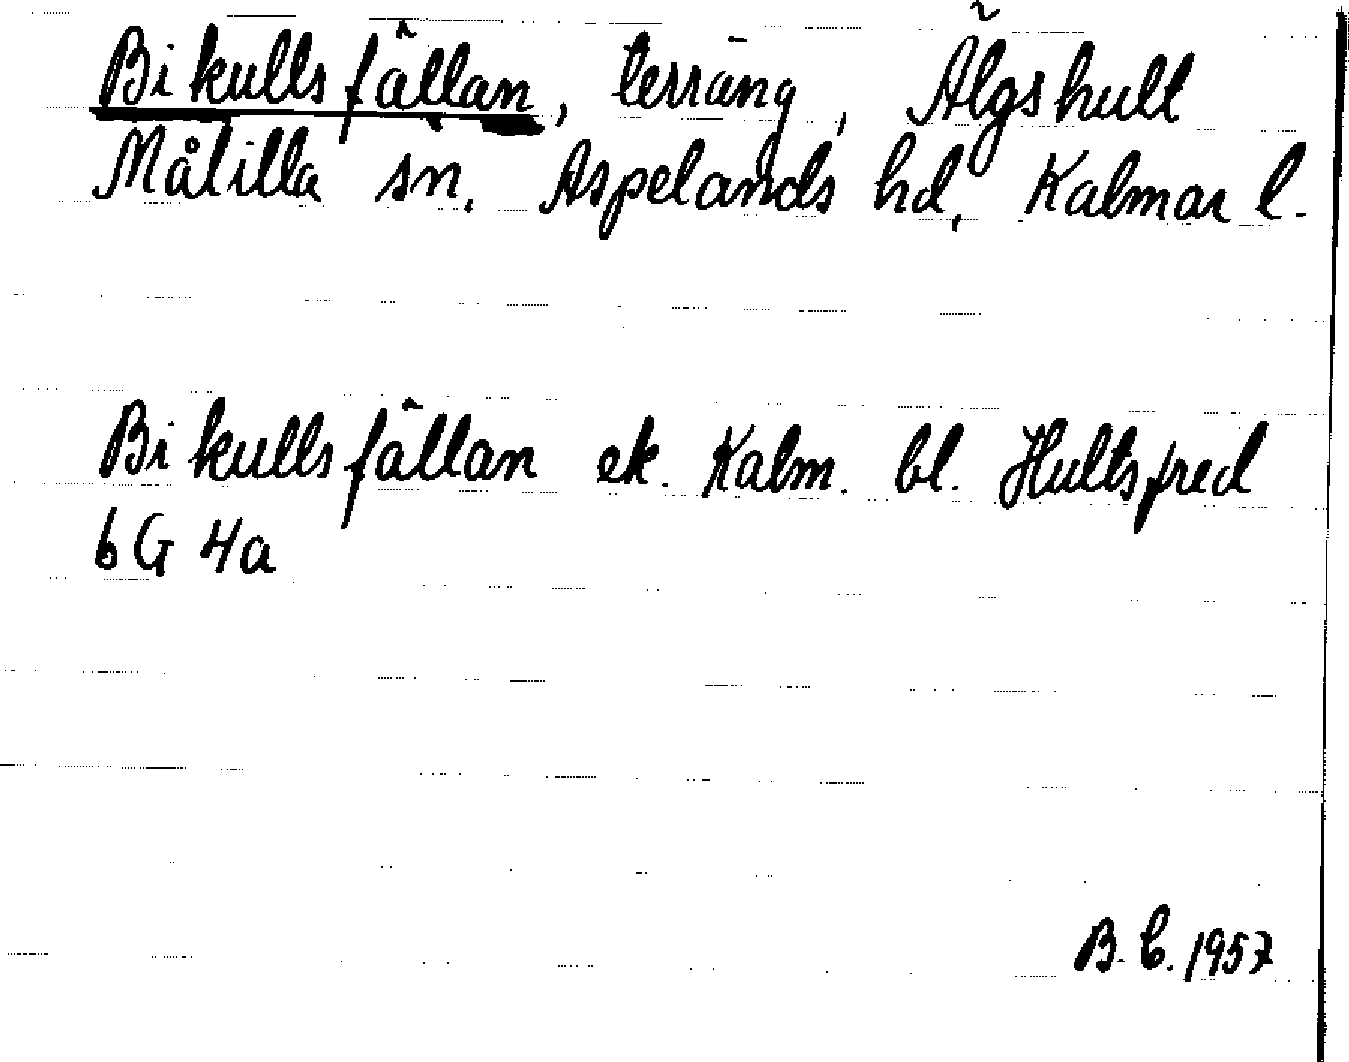 Bikullsfällan, terräng, Älgshult
Målilla sn. Aspelands hd, Kalmar l.
Bikullsfällan ek. Kalm. bl. Hultsfred
6G 4a
B.b. 1957